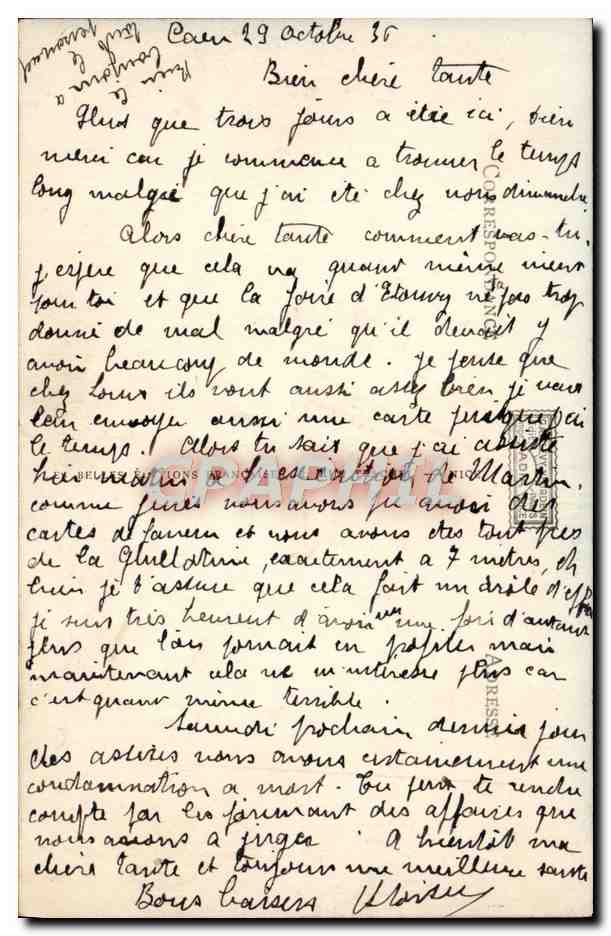 Caen 29 octobre 36
Bien le bonjour a tout le personnel
Bien chère tante
Plus que trois jours a être ici, bien
merci car je commence a trouver le temps
long malgré que j'ai été chez nous dimanche.
Alors chère tante comment vas-tu,
j'espère que cela va quand même mieux
pour toi et que la foire d' ne pas trop
donné de mal malgré qu'il devait y
avoir beaucoup de monde. Je pense que
chez ils vont aussi assez bien je vais
leur envoyer aussi une carte puisque j'ai
le temps. Alors tu sais que j'ai assisté
hier matin a l'exécution de Martin.
comme jurés nous avons pu avoir des
cartes de faveur et nous avons étés tout près
de la Guillotine, exactement a 7 mètres, eh
bien je t'assure que cela fait un drôle d'effet
je suis très heureux d'avoir vu une fois d'autant
plus que l'on pouvait en profiter mais
maintenant cela ne m'intéresse plus car
c'est quand même terrible.
Samedi prochain dernier jour
des assises nous avons certainement une
condamnation a mort. Tu peux te rendre
compte par les journaux des affaires que
nous avons a juger. A bientôt ma
chère tante et toujours une meilleure santé
Bons baisers
CORRESPONDANCE
ADRESSE
LES BELLES ÉDITIONS FRANÇAISES
CPAPHIL